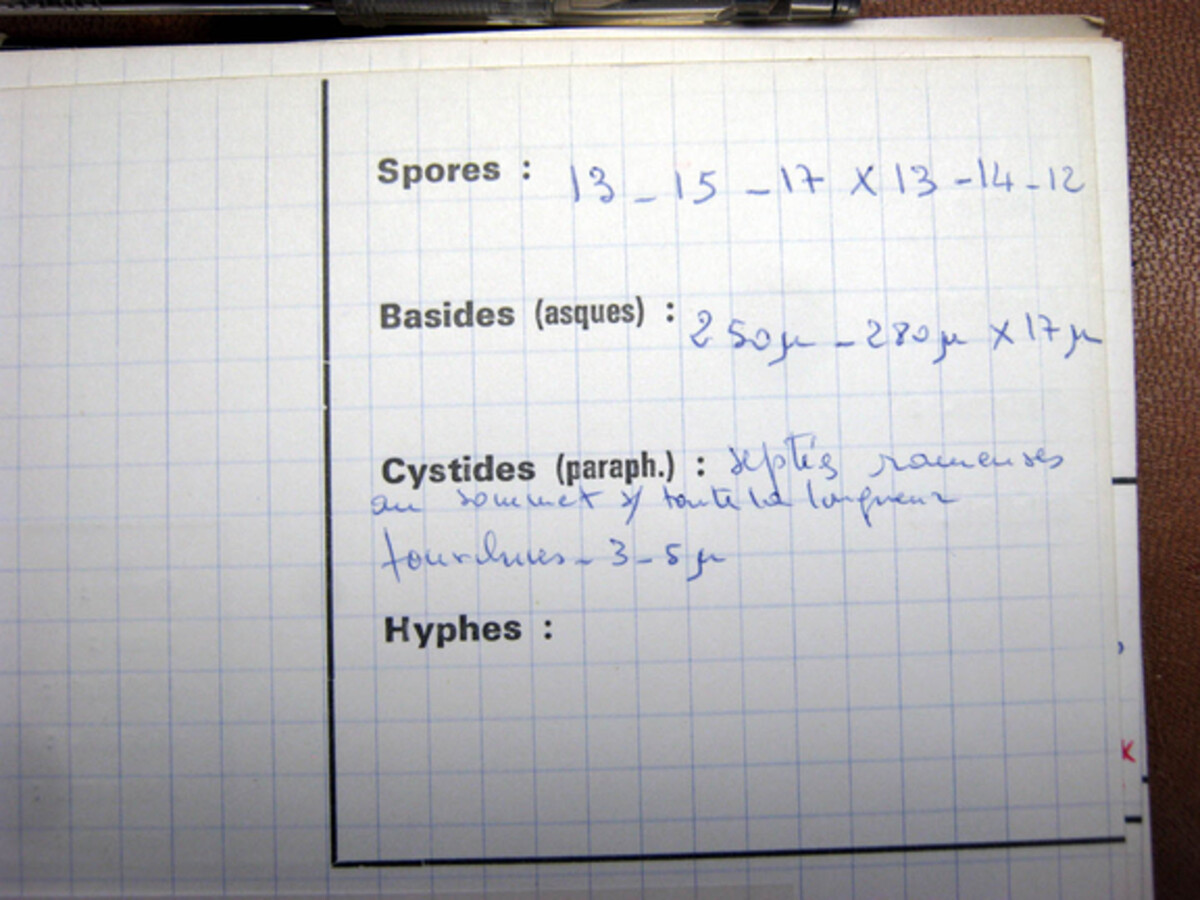 Spores : 13 _ 15 _ 17 X 13 - 14 - 12
Basides (asques) : 250µ _ 280µ X 17µ
Cystides (paraph.) : septés rameuses
au sommet s/ toute la longueur
fourchues - 3 - 5µ
Hyphes :
K